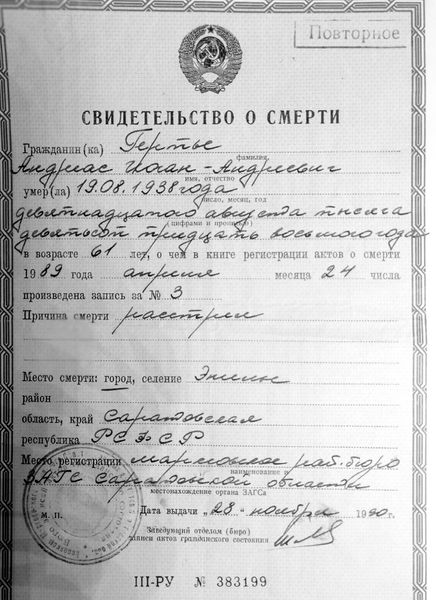 Повторное
СВИДЕТЕЛЬСТВО О СМЕРТИ
Гражданин(ка) Гертье
фамилия
Андриас Иоан-Андриевич
имя, отчество
умер(ла) 19.08.1938 года
число, месяц, год
девятнадцатого августа тысяча
(цифрами и прописью)
девятьсот тридцать восьмого года
в возрасте 61 лет, о чем в книге регистрации актов о смерти
1989 года апреля месяца 24 числа
произведена запись за № 3
Причина смерти расстрел
Место смерти: город, селение Энгельс
район
область, край Саратовская
республика РСФСР
наименование и
Место регистрации Марксовское рай.бюро
ЗАГС Саратовской области
местонахождение органа ЗАГСа
М. П.
Дата выдачи «28» ноября 1990г.
Заведующий отделом (бюро)
записи актов гражданского состояния
III-РУ № 383199